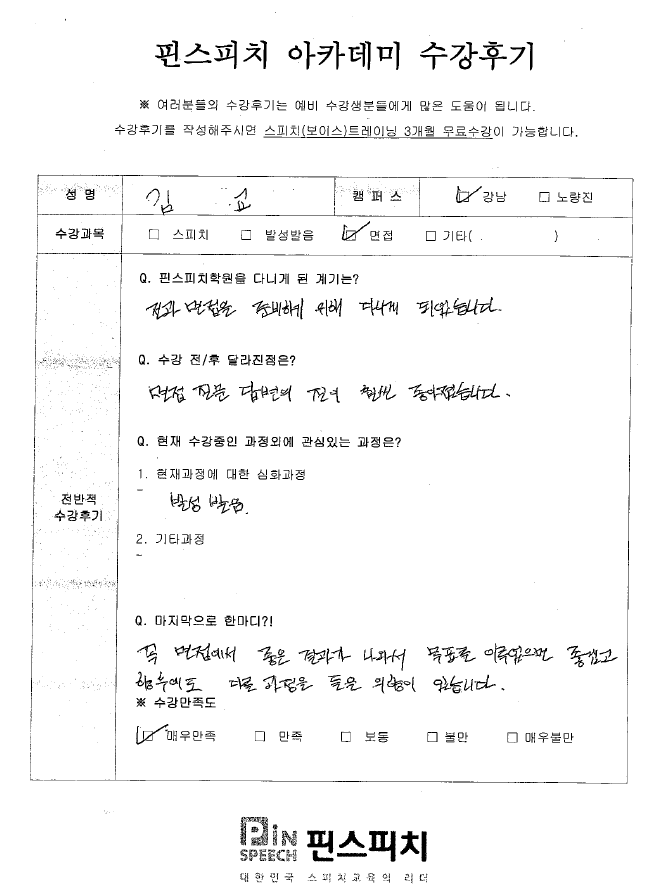 핀스피치 아카데미 수강후기
※ 여러분들의 수강후기는 예비 수강생분들에게 많은 도움이 됩니다.
수강후기를 작성해주시면 스피치(보이스)트레이닝 3개월 무료수강이 가능합니다.
성 명 김 교 캠 퍼 스 ☑ 강남 □ 노량진
수강과목 □ 스피치 □ 발성발음 ☑ 면접 □ 기타( . )
Q. 핀스피치학원을 다니게 된 계기는?
전과 면접을 준비하기 위해 다니게 되었습니다.
Q. 수강 전/후 달라진점은?
면접 전문 답변의 전이 훨씬 좋아졌습니다.
Q. 현재 수강중인 과정외에 관심있는 과정은?
1. 현재과정에 대한 심화과정
-
발성 발음.
2. 기타과정
-
전반적
수강후기
Q. 마지막으로 한마디?!
꼭 면접에서 좋은 결과가 나와서 목표를 이루었으면 좋겠고
향후에도 다른 과정을 들을 의향이 있습니다.
※ 수강만족도
☑ 매우만족 □ 만족 □ 보통 □ 불만 □ 매우불만
PiN
SPEECH 핀스피치
대한민국 스피치교육의 리더